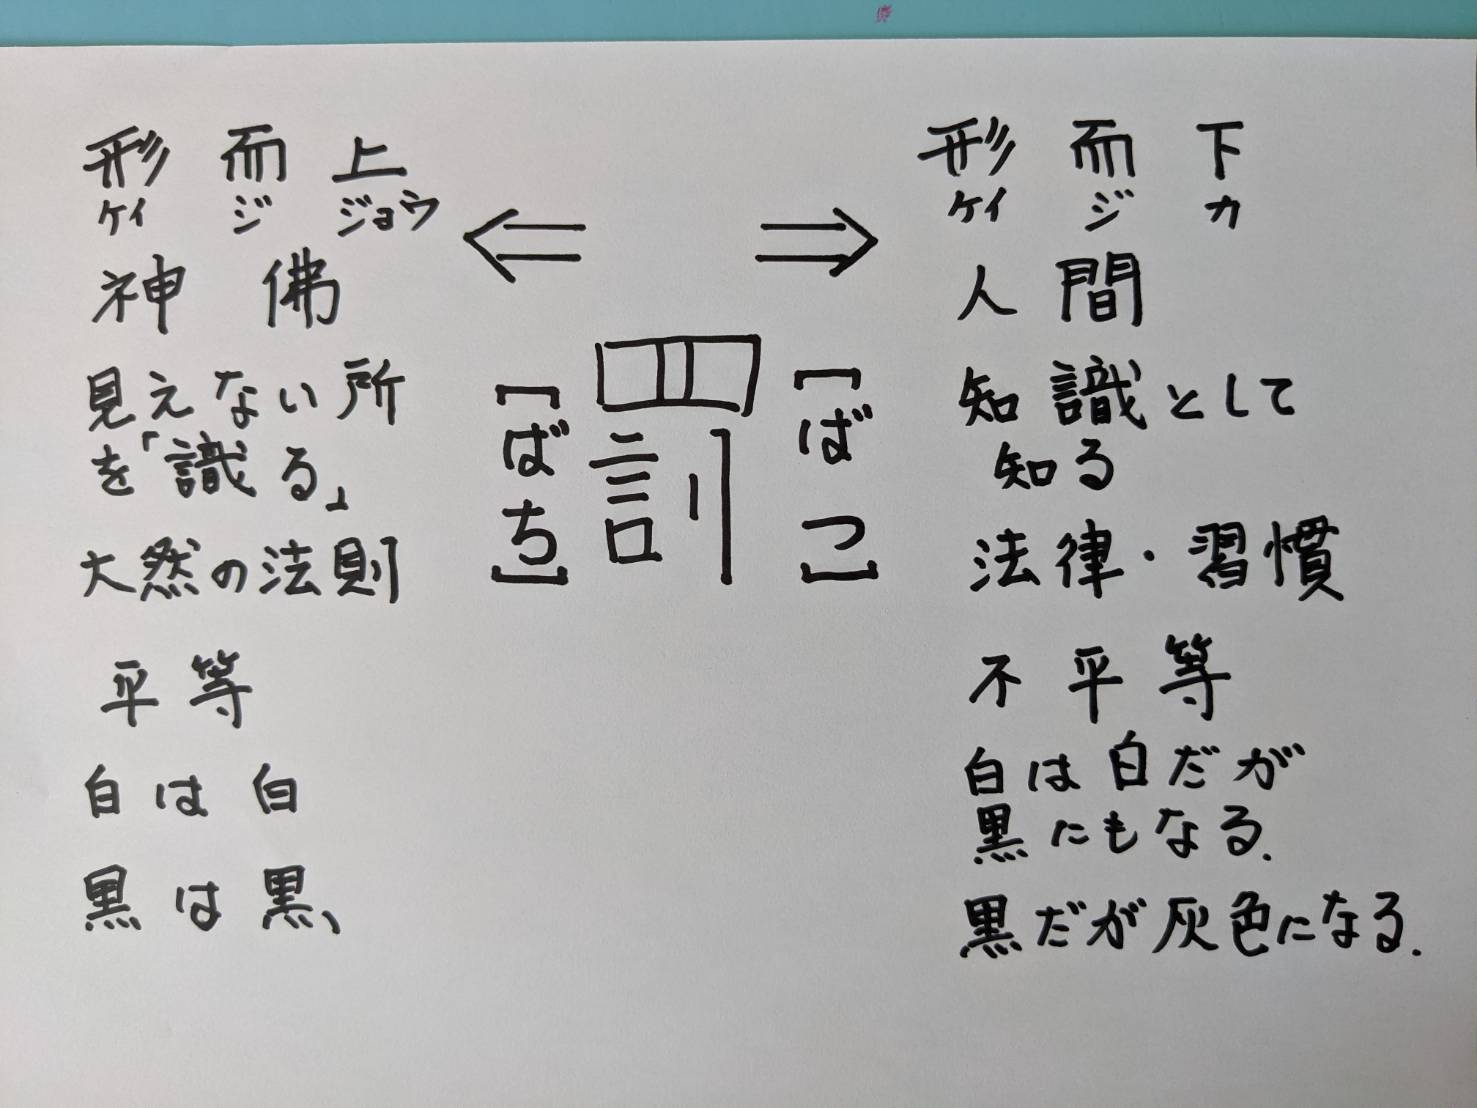 形而上
ケイジジョウ
神佛
見えない所
を「識る」
大然の法則
平等
白は白
黒は黒、
[ばち]
罰
[ばつ]
形而下
ケイジカ
人間
知識として
知る
法律・習慣
不平等
白は白だが
黒にもなる.
黒だが灰色になる.